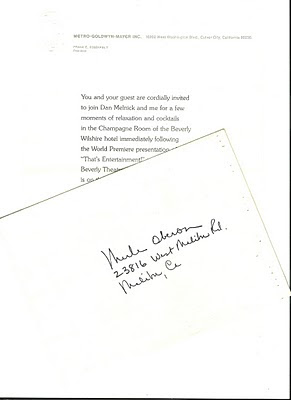 METRO-GOLDWYN-MAYER INC. 10202 West Washington Blvd., Culver City, California 90230
President
You and your guest are cordially invited
to join Dan Melnick and me for a few
moments of relaxation and cocktails
in the Champagne Room of the Beverly
Wilshire hotel immediately following
the World Premiere presentation
"That's Entertainment!"
Beverly
is
Merle Oberon
23816 West Malibu Rd.
Malibu, Ca